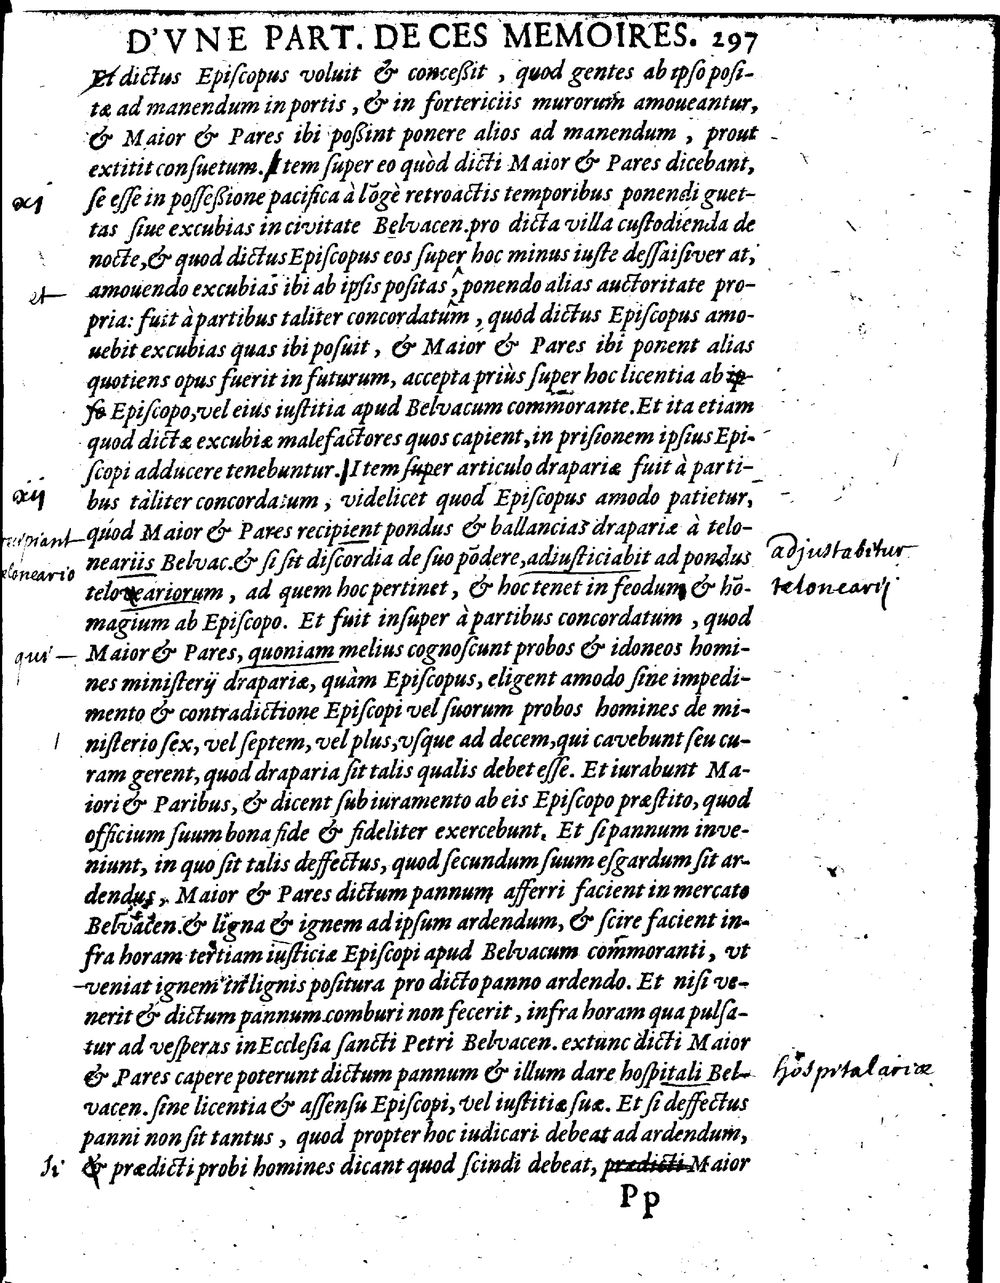 D'VNE PART. DE CES MEMOIRES. 297
Et dictus Epiſcopus voluit & conceßit, quod gentes ab ipſo poſi-
tæ ad manendum in portis, & in fortericiis murorum amoueantur,
& Maior & Pares ibi poßint ponere alios ad manendum, prout
extitit conſuetum. Item ſuper eo quòd dicti Maior & Pares dicebant,
xj
ſe eſſe in poſſeßione pacifica à lõgè retroactis temporibus ponendi guet-
tas ſiue excubias in civitate Belvacen. pro dicta villa cuſtodienda de
nocte, & quod dictus Epiſcopus eos ſuper hoc minus iuſte deſſaiſiverat,
et
amouendo excubias ibi ab ipſis poſitas, ponendo alias auctoritate pro-
pria: fuit à partibus taliter concordatum, quòd dictus Epiſcopus amo-
uebit excubias quas ibi poſuit, & Maior & Pares ibi ponent alias
quotiens opus fuerit in futurum, accepta priùs ſuper hoc licentia ab ip-
ſo Epiſcopo, vel eius iuſtitia apud Belvacum commorante. Et ita etiam
quod dictæ excubiæ malefactores quos capient, in priſionem ipſius Epi-
ſcopi adducere tenebuntur. Item ſuper articulo drapariæ fuit à parti-
xij
bus taliter concordatum, videlicet quod Epiſcopus amodo patietur,
quòd Maior & Pares recipient pondus & ballancias drapariæ à telo-
recipiant
neariis Belvac. & ſi ſit diſcordia de ſuo põdere, adiuſticiabit ad pondus
adjustabitur
teloneario
teloneariorum, ad quem hoc pertinet, & hoc tenet in feodum & hõ-
telonearij
magium ab Epiſcopo. Et fuit inſuper à partibus concordatum, quod
qui
Maior & Pares, quoniam melius cognoſcunt probos & idoneos homi-
nes miniſterij drapariæ, quàm Epiſcopus, eligent amodo ſine impedi-
mento & contradictione Epiſcopi vel ſuorum probos homines de mi-
niſterio ſex, vel ſeptem, vel plus, vſque ad decem, qui cavebunt ſeu cu-
ram gerent, quod draparia ſit talis qualis debet eſſe. Et iurabunt Ma-
iori & Paribus, & dicent ſub iuramento ab eis Epiſcopo præſtito, quod
officium ſuum bona fide & fideliter exercebunt. Et ſi pannum inve-
niunt, in quo ſit talis deffectus, quod ſecundum ſuum eſgardum ſit ar-
dendus, Maior & Pares dictum pannum afferri facient in mercato
Belvacen. & ligna & ignem ad ipſum ardendum, & ſcire facient in-
fra horam tertiam iuſticiæ Epiſcopi apud Belvacum commoranti, vt
veniat ignem in lignis poſitura pro dicto panno ardendo. Et niſi ve-
nerit & dictum pannum comburi non fecerit, infra horam qua pulſa-
tur ad veſperas in Eccleſia ſancti Petri Belvacen. extunc dicti Maior
& Pares capere poterunt dictum pannum & illum dare hoſpitali Bel-
hospitalariæ
vacen. ſine licentia & aſſenſu Epiſcopi, vel iuſtitiæ ſuæ. Et ſi deffectus
panni non ſit tantus, quod propter hoc iudicari debeat ad ardendum,
si
& prædicti probi homines dicant quod ſcindi debeat, prædicti Maior
Pp